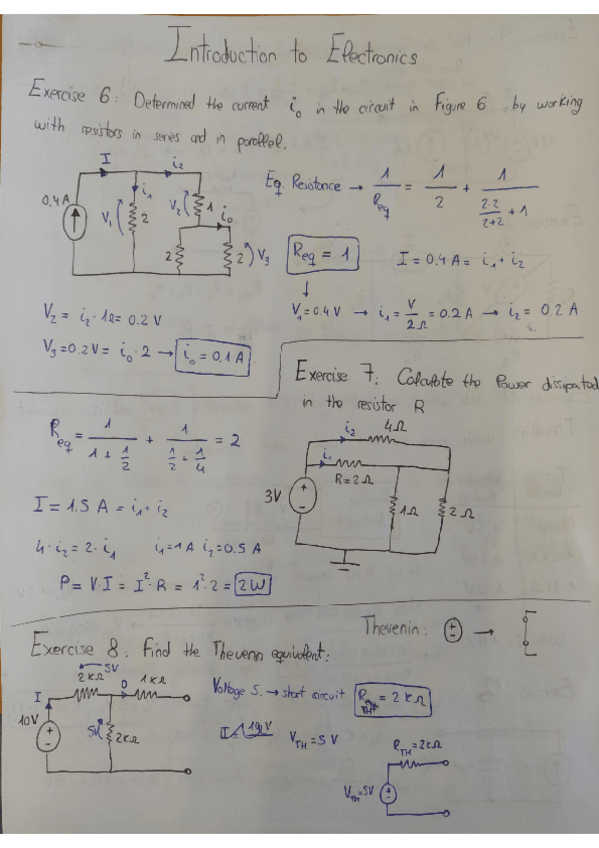 Introduction to Electronics
Exercise 6: Determined the current i₀ in the circuit in Figure 6 by working
with resistors in series and in parallel.
I i₂
0.4 A V₁ i₁ 2 V₂ 1 i₀
2 2 V₃
Eq. Resistance → 1/Req = 1/2 + 1/(2·2/(2+2) + 1)
Req = 1 I = 0.4 A = i₁ + i₂
↓
V₁ = 0.4 V → i₁ = V/2Ω = 0.2 A → i₂ = 0.2 A
V₂ = i₂ · 1Ω = 0.2 V
V₃ = 0.2 V = i₀ · 2 → i₀ = 0.1 A
Exercise 7: Calculate the Power dissipated
in the resistor R
i₂ 4Ω
i₁
R = 2Ω
3V 1Ω 2Ω
Req = 1/(1 + 1/2) + 1/(1/2 + 1/4) = 2
I = 1.5 A = i₁ + i₂
4 · i₂ = 2 · i₁ i₁ = 1 A i₂ = 0.5 A
P = V·I = I²·R = 1²·2 = 2W
Thevenin: →
Exercise 8: Find the Thevenin equivalent:
5V
2kΩ 0 1kΩ
I
10V 5V 2kΩ
Voltage S. → short circuit R_TH = 2 kΩ
V_TH = 5 V
R_TH = 2kΩ
V_TH = 5V